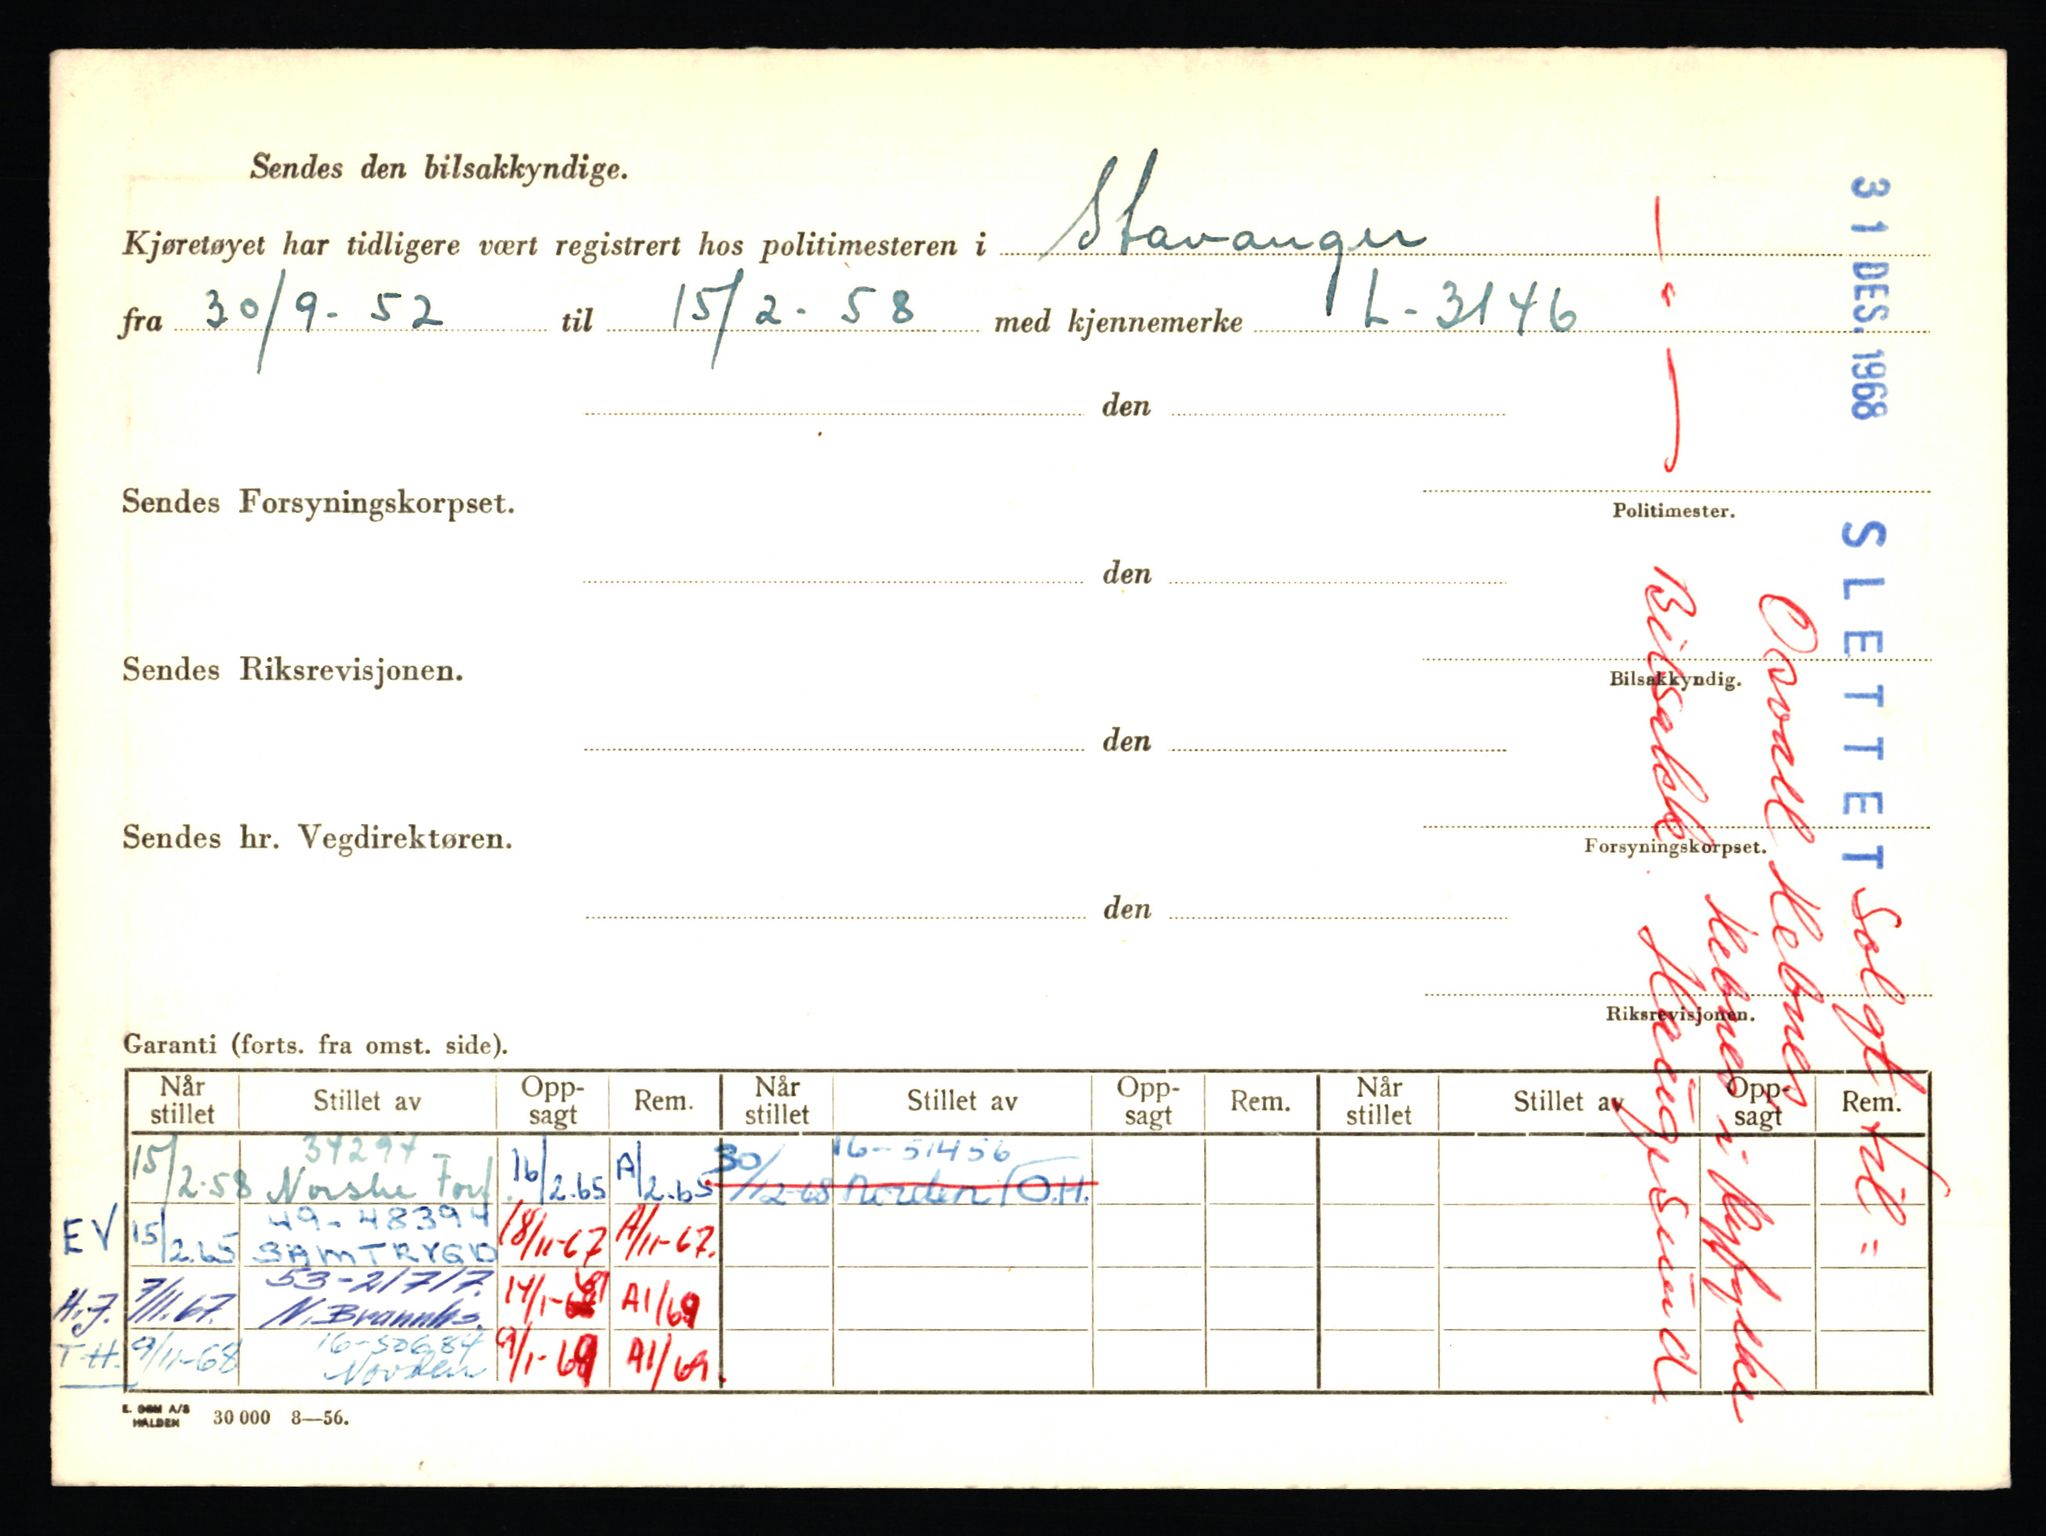 Sendes den bilsakkyndige.
Kjøretøyet har tidligere vært registrert hos politimesteren i Stavanger
fra 30/9-52 til 15/2-58 med kjennemerke L-3146
den
Politimester.
Sendes Forsyningskorpset.
den
Bilsakkyndig.
Sendes Riksrevisjonen.
den
Forsyningskorpset.
Sendes hr. Vegdirektøren.
den
Riksrevisjonen.
31 DES. 1968 SLETTET
Solgt til =
Osvall Hebnes
Hebnes i
Bilsakk. Haugesund
Garanti (forts. fra omst. side).
Når stillet Stillet av Opp-sagt Rem. Når stillet Stillet av Opp-sagt Rem. Når stillet Stillet av Opp-sagt Rem.
15/2-58 34294 Norske Forf. 16/2.65 A/2.65 30/12-68 16-51456 Norden O.H.
EV 15/2.65 49-48394 SAMTRYGD 18/11-67 A/11-67.
H.J. 7/11.67. 53-21717. N. Brannks. 14/1-69 A1/69
T.H. 9/11-68 16-50684 Norden 9/1-69 A1/69.
HALDEN 30 000 8—56.